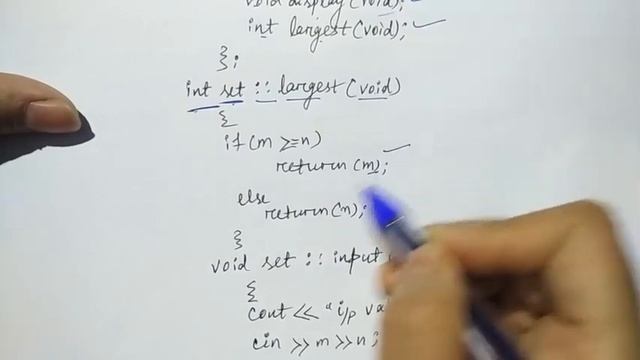 void display(void);
int largest(void);
};
int set :: largest(void)
{
if(m >=n)
return (m);
else
return(n);
}
void set :: input
{
cout << "i/p va
cin >> m >> n;